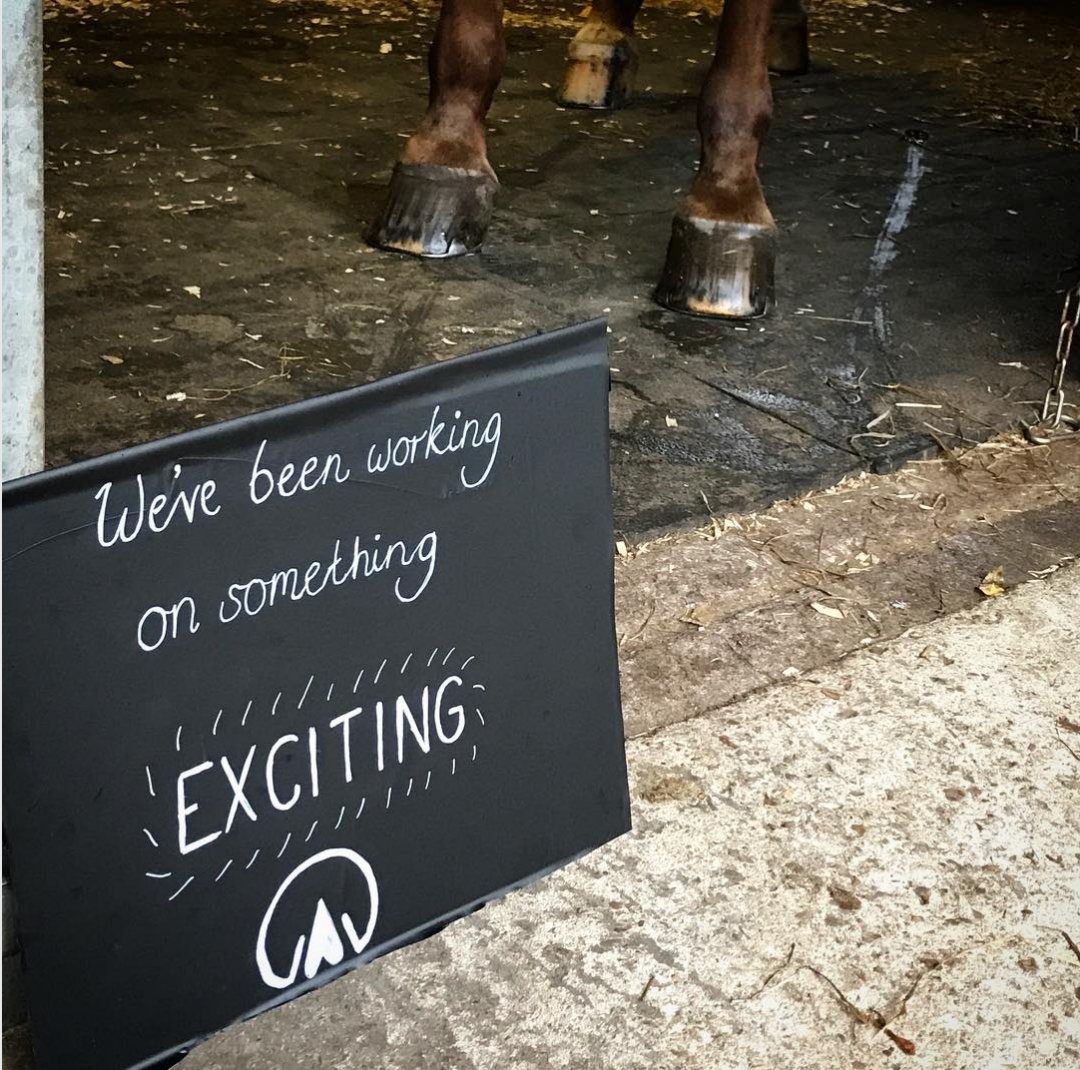 We've been working
on something
EXCITING